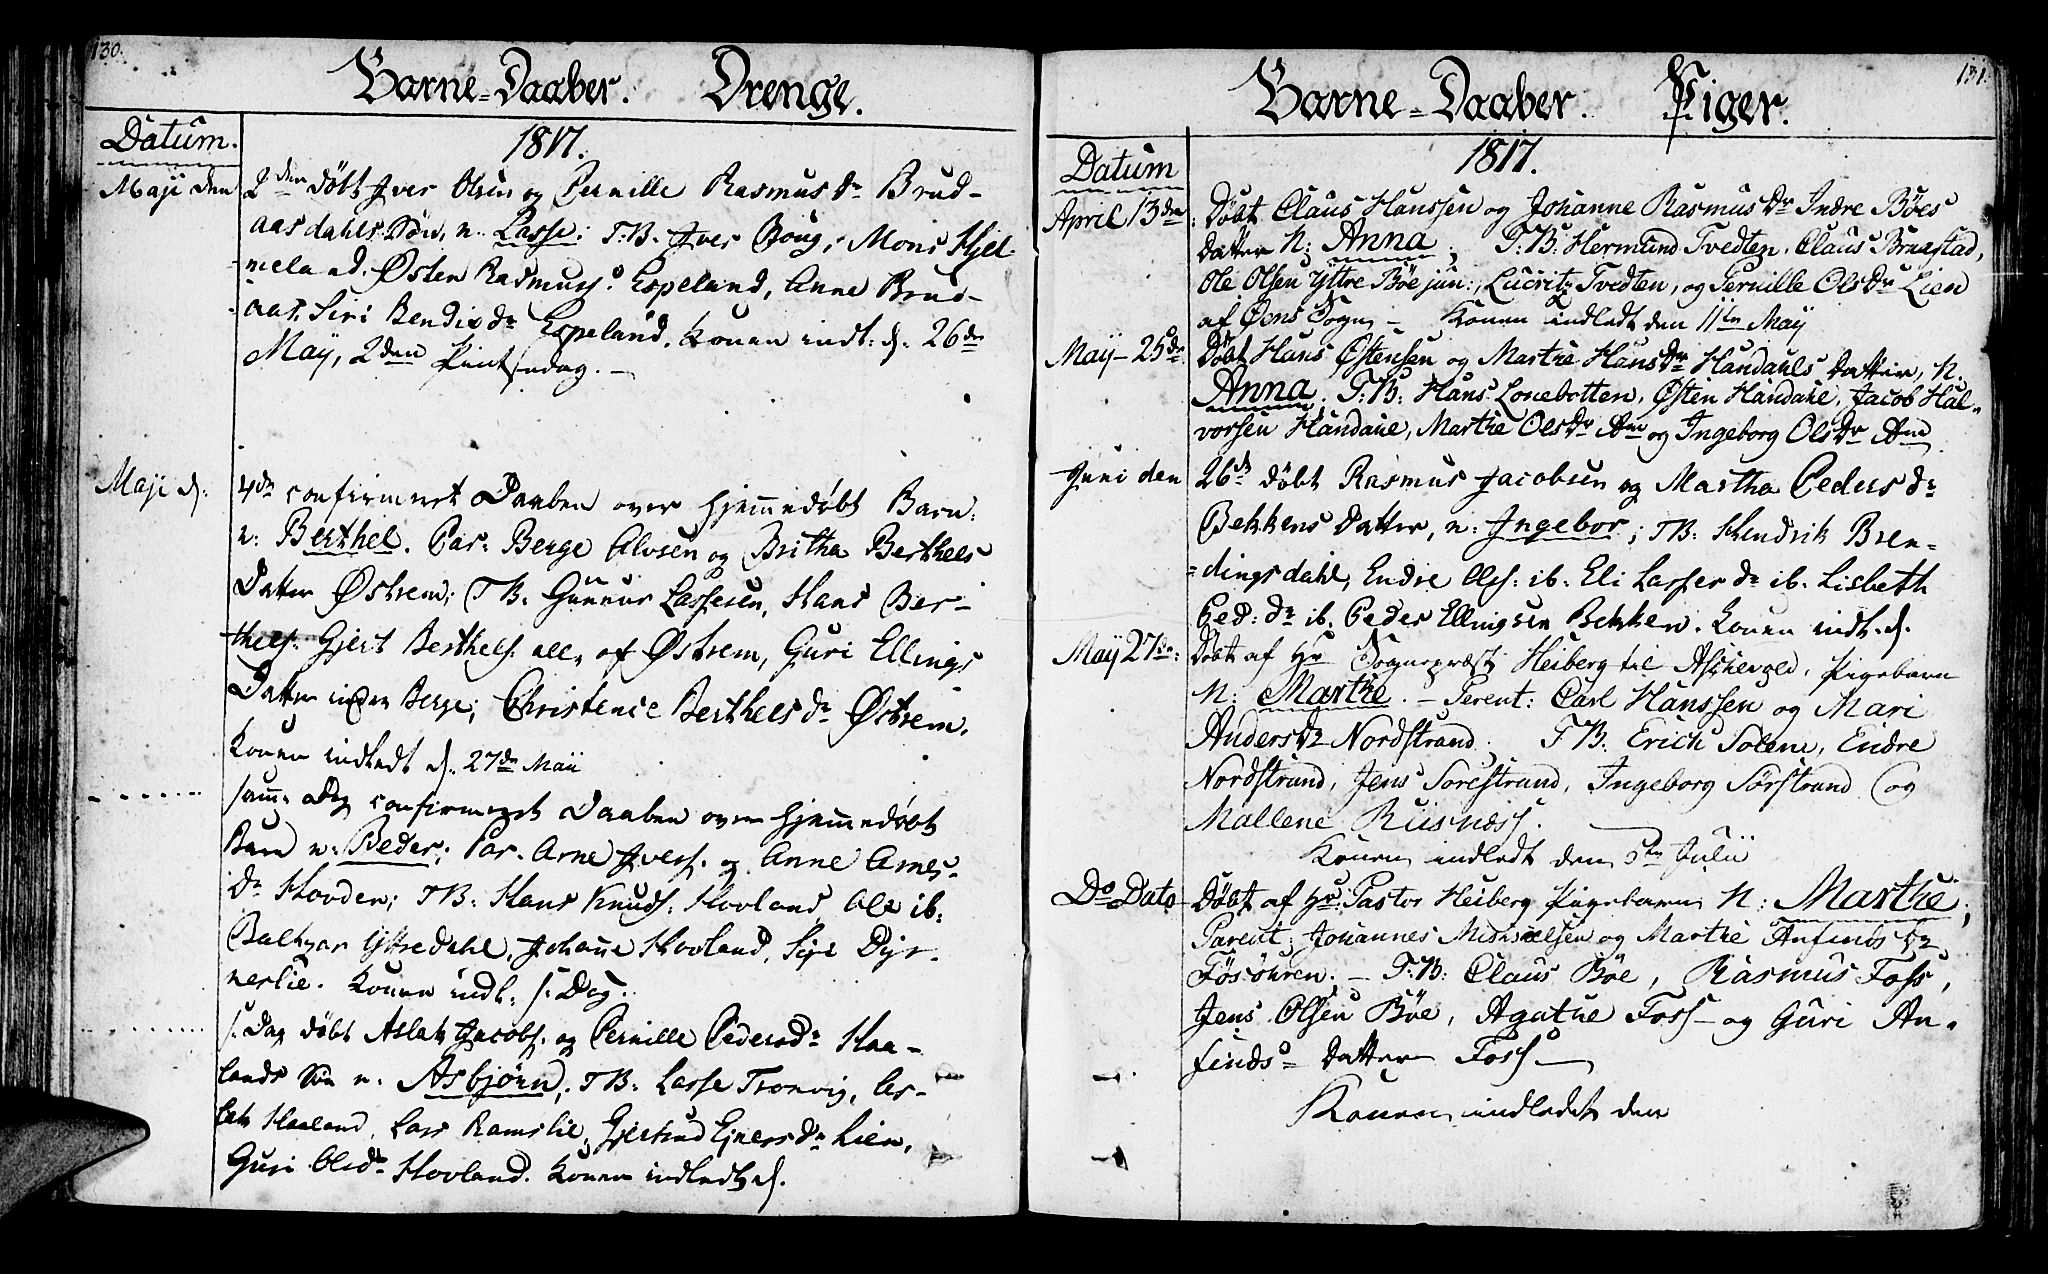 130.
Barne-Daaber. Drenge.
Datum.
1817.
Maji den 2den døbt Iver Olsen og Pernille Rasmusdr Brud-
aasdahls Søn, n. Lasse; T.B. Iver Bøug, Mons Hjel-
meland, Østen Rasmuss. Espeland, Anne Brud-
aas, Siri Bendixdr Espeland. Konen indl: d. 26de
Maÿ, 2den Pintsedag. –
Maji d. 4de confirmeret Daaben over hjemmedøbt Barn.
n: Berthel. Par: Berge Alvsen og Britha Berthels
Datter Østrem; T.B. Gunnar Lassesen, Hans Ber-
thels: Gjert Berthels: alle af Østrem, Guri Ellings
Datter inden Berge; Christence Berthelsdr Østrem.
Konen indledt d. 27de Maii
samme Dag confirmeret Daaben over hjemmedøbt
Barn n: Peder; Par. Arne Ivers. og Anne Arnes-
dr Hovden; T.B: Hans Knuds: Hovland, Ole ib.
Balthzar Yttredahl, Johanne Hovland, Siri Dyr-
nerlie. Konen indl. s: Dag.
s. Dag døbt Aslak Jacobs. og Pernille Pedersdr Haa-
lands Søn n: Asbjørn; T.B: Lasse Tronvig, As-
lak Haaland, Lars Ramslie, Gjertrud Ejnersdr Lien,
Guri Olsdr Hovland. Konen indledt d.
131.
Barne-Daaber. Piger.
Datum
1817.
April 13den: Døbt Claus Hanssen og Johanne RasmusDr Indre Bøes
Datter N: Anna; T.B: Hermund Tvedten, Claus Braastad,
Ole Olsen Yttre Böe jun:, Lucritz Tvedten, og Pernille OlsDr Lien
af Øens Sogn – Konen indledt den 11te May
Maÿ – 25de: Døbt Hans Østensen og Marthe HansDr Handahls Datter, N.
Anna. T.B: Hans Lonebotten, Østen Handahl, Jacob Hal-
vorsen Handahl, Marthe OlsDr Aae og Ingeborg OlsDr Aae
Juni den 26de døbt Rasmus Jacobsen og Martha Pedersdr
Bekkens Datter, n: Ingebor; T.B: Hendrik Bren-
dingsdahl, Endre Ols: ib. Eli Lassesdr ib. Lisbeth
Ped: dr ib. Peder Ellingsen Bekken. Konen indl. d.
Maÿ 27de: Döbt af Hr Sognepræst Heiberg til Aschevold, Pigebarn
N: Marthe. – Parent: Carl Hanssen og Mari
AndersDr Nordstrand. T.B. Erich Solem, Endre
Nordstrand, Jens Sorestrand, Ingeborg Sørstrand og
Mallene Risnæss.
Konen indledt den 5te Julii
Do Dato Döbt af Hr: Pastor Heiberg Pigebarn N: Marthe;
Parent: Johannes Michelsen og Marthe AnfindsDr
Fosøhren. – T.B: Claus Böe, Rasmus Foss,
Jens Olsen Böe, Agathe Foss – og Guri An-
finds- Datter Foss –
Konen indledet den